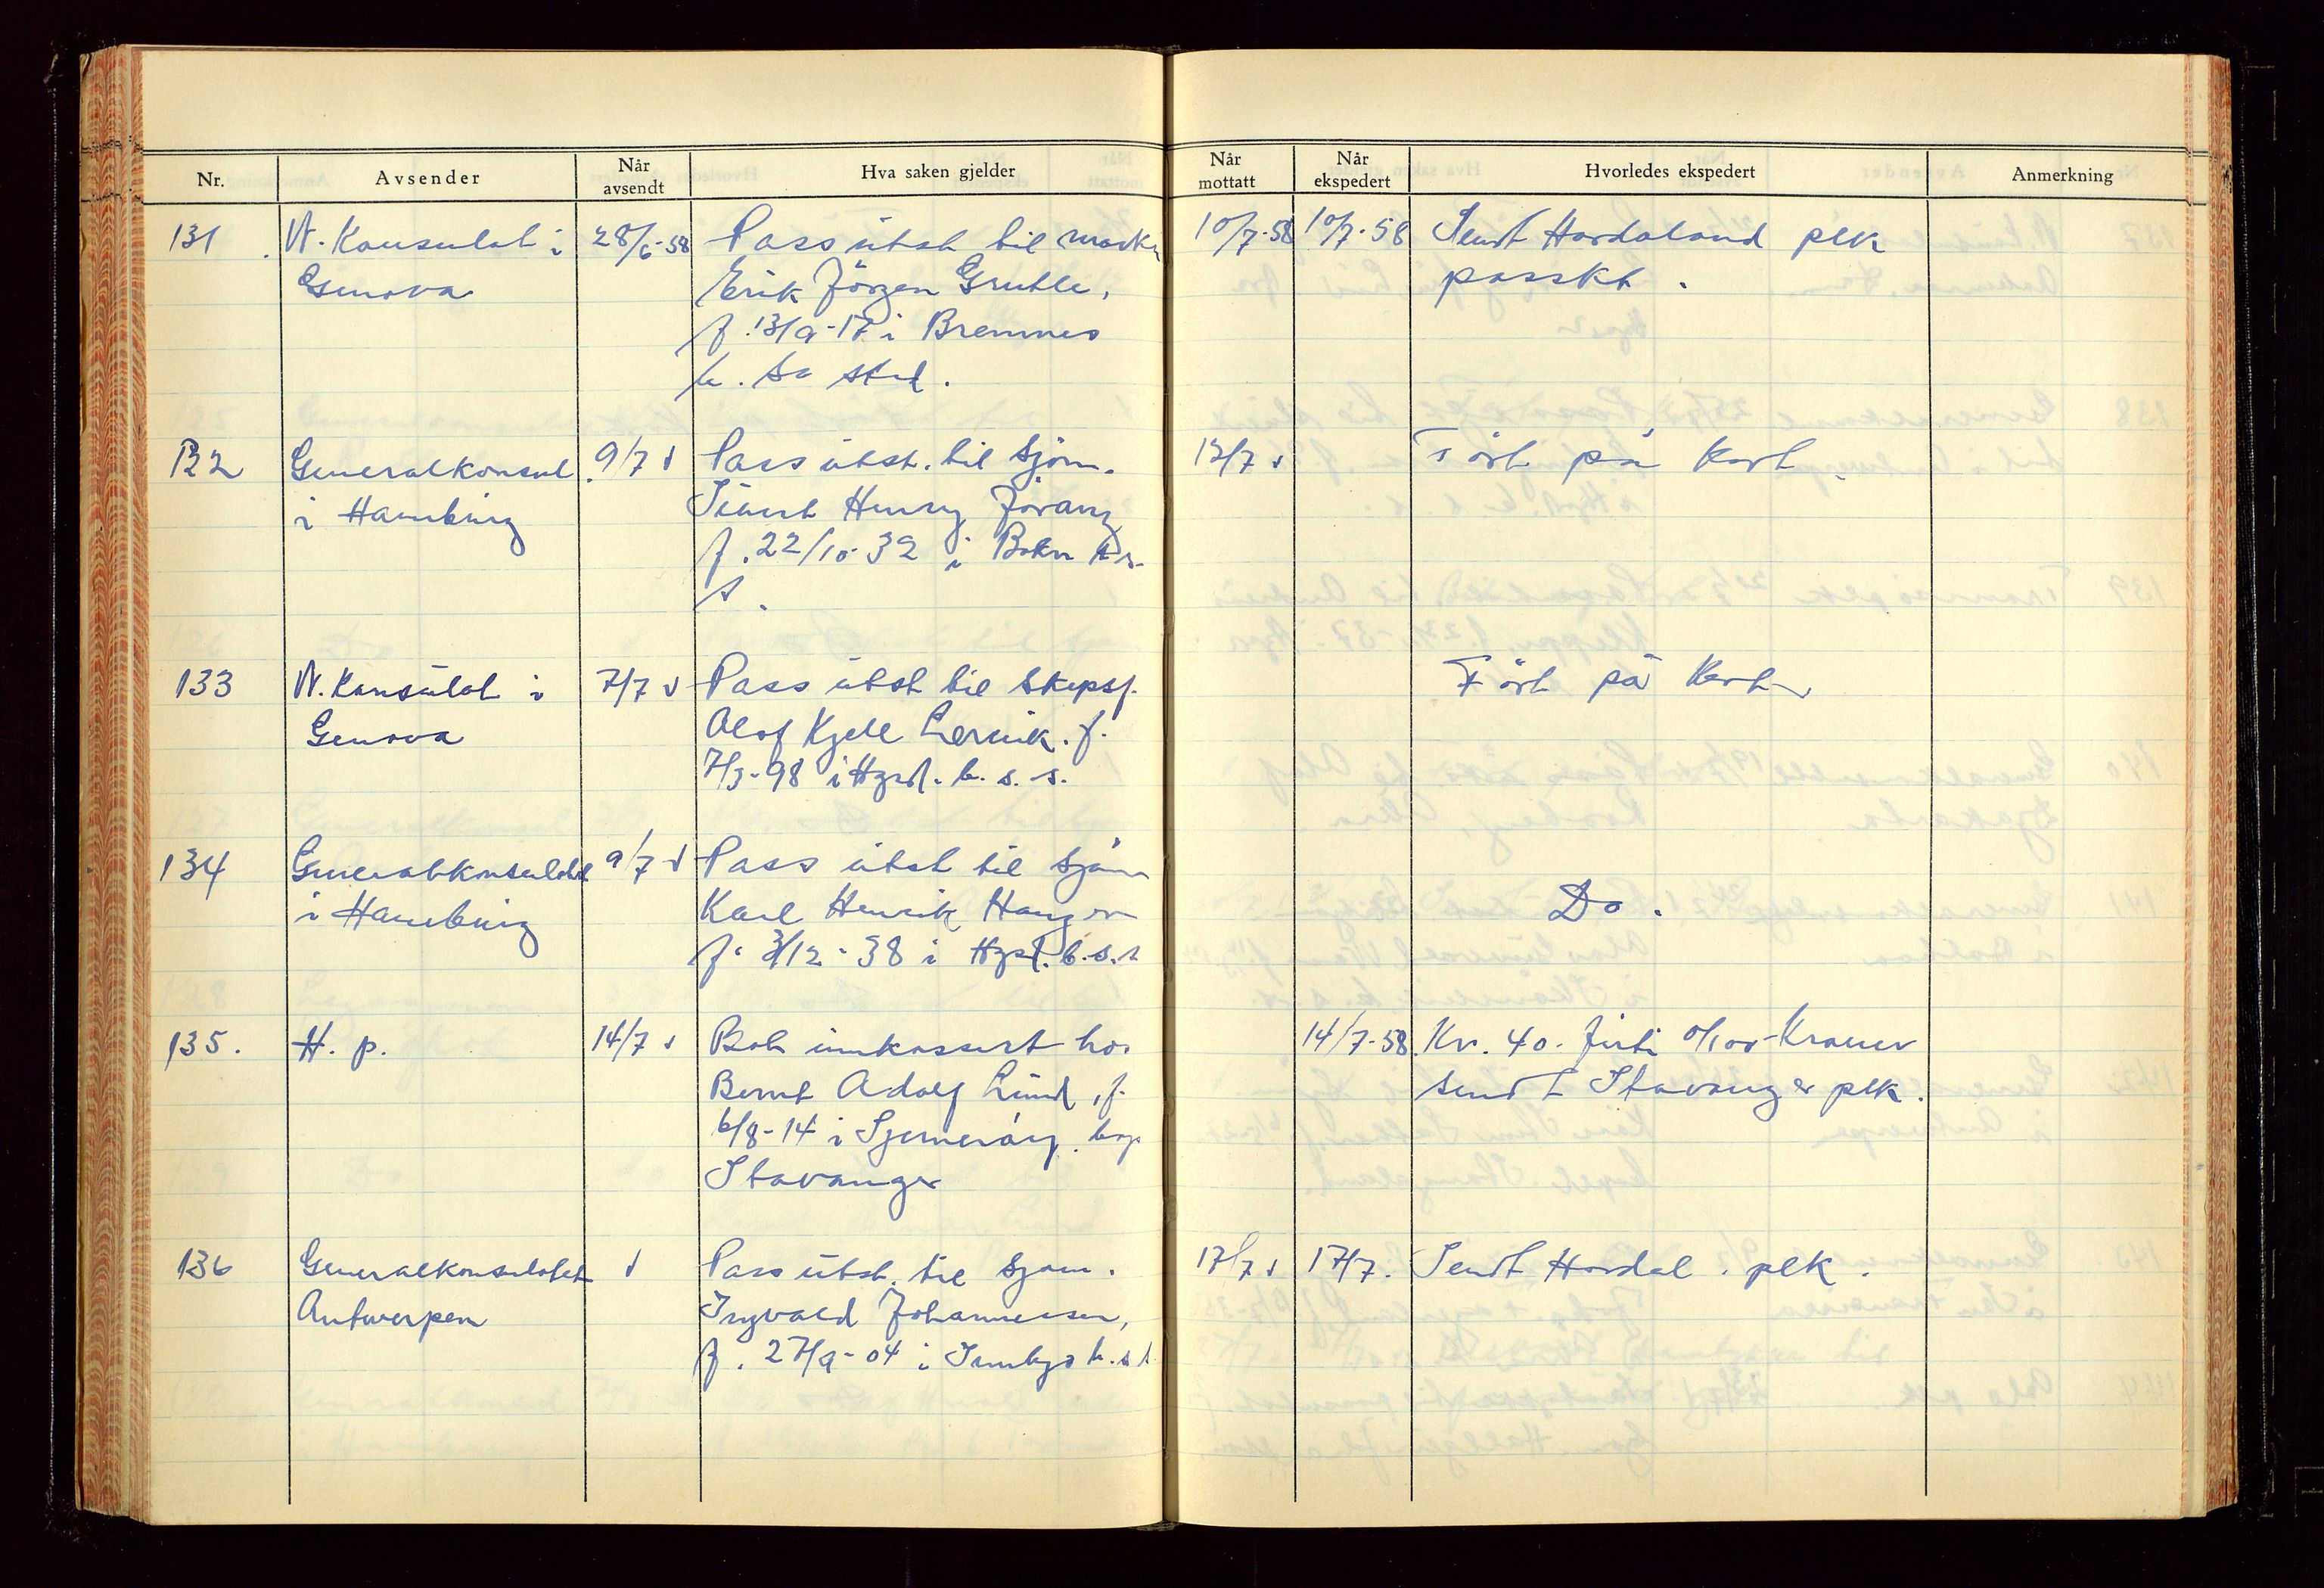 Nr.
Avsender
Når avsendt
Hva saken gjelder
Når mottatt
Når ekspedert
Hvorledes ekspedert
Anmerkning
131 N. Konsulat i 28/6-58 Pass utst til 10/7-58 10/7-58 Sendt Hordaland plk
Genova Erik Jörgen Gruble, passkt.
f. 13/9-17 i Bremnes
b. sa sted.
132 Generalkonsul 9/7 Pass utst. til Sjöm. 12/7 Fört på Kort
i Hamburg Henry
f. 22/10-32 i Bokn
s.
133 N. Konsulat i 7/7 Pass utst til Skipsf. Fört på Kort
Genova Olof Kjell f.
7/3-98 i Hgsd. b. s. s.
134 Generalkonsulatet 9/7 Pass utst til Sjöm
i Hamburg Karl Henrik Do.
f. 3/12-38 i Hgsd. b. s. s
135. H. p. 14/7 Bot innkassert hos 14/7-58. Kr. 40. förti 0/100 Kroner
Bernt Adolf Lund, f. sendt Stavanger plk.
6/8-14 i bop
Stavanger
136 Generalkonsulatet Pass utst. til Sjöm. 17/7 17/7. Sendt Hordal. plk.
Antwerpen Ingvald Johannesen,
f. 27/9-04 i b. s s